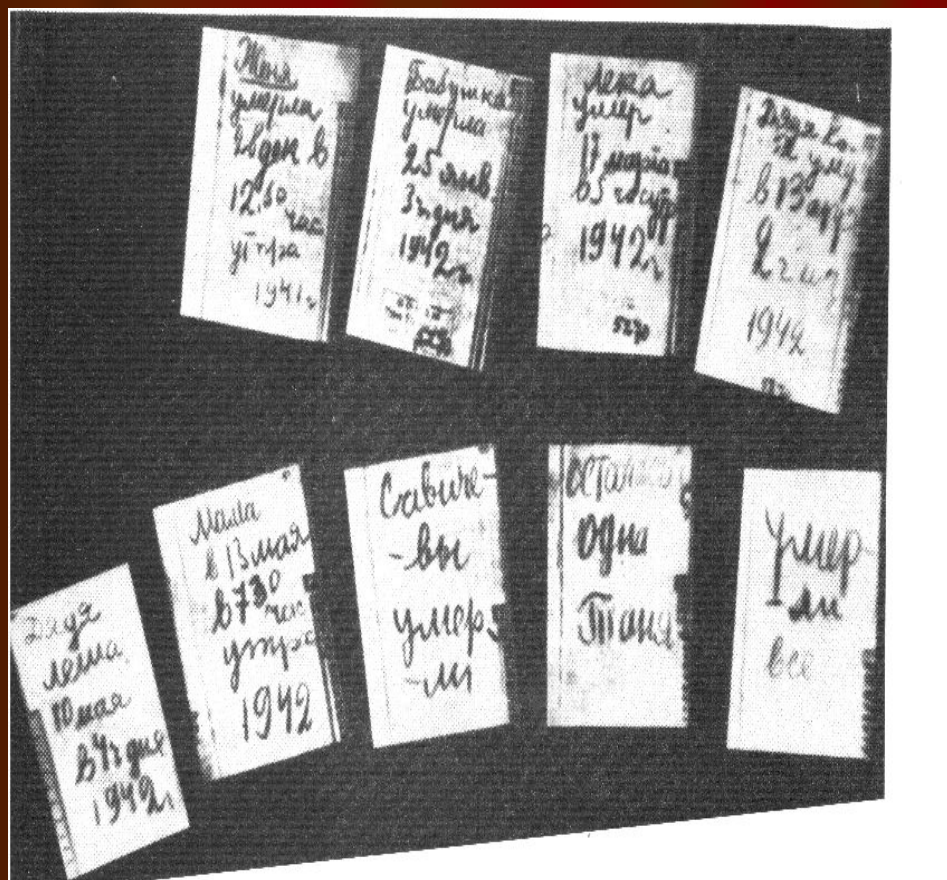 Женя
умерла
28 дек в
12.30
час
утра
1941 г
Бабушка
умерла
25 янв.
3 ч. дня
1942 г.
Лека
умер
17 марта
в 5 час утр
1942 г.
Дядя
в 13 апр
2 ч
1942
Дядя
Леша
10 мая
в 4 ч дня
1942 г
Мама
в 13 мая
в 7 30
час
утра
1942
Савиче-
-вы
умер-
-ли
осталась
одна
Таня
Умер-
-ли
все